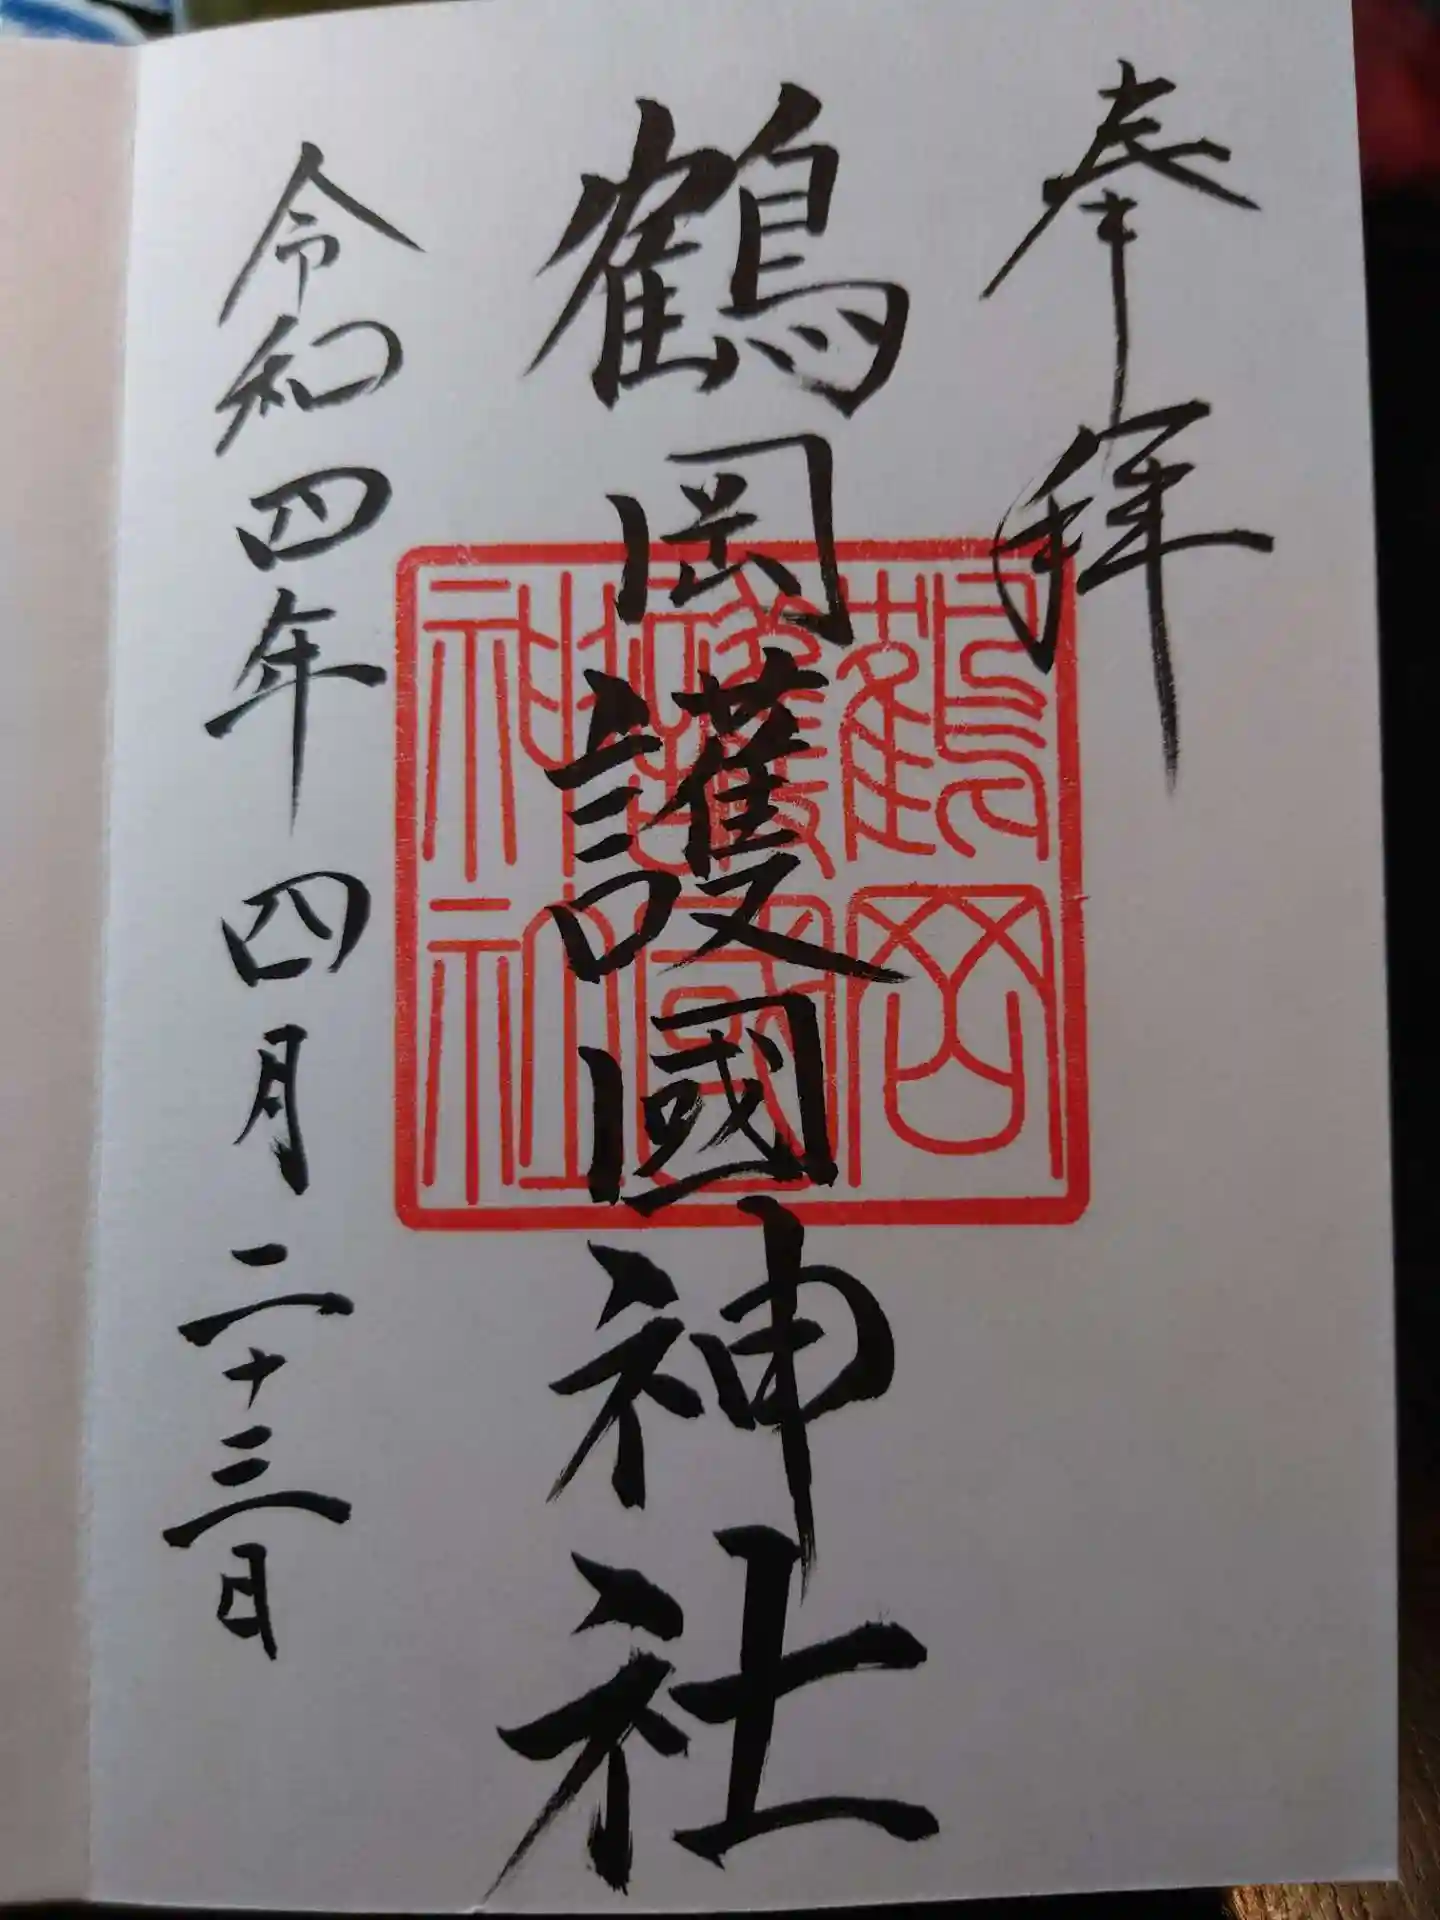 奉拝
鶴岡護國神社
鶴岡
護國
神社
令和四年四月二十三日